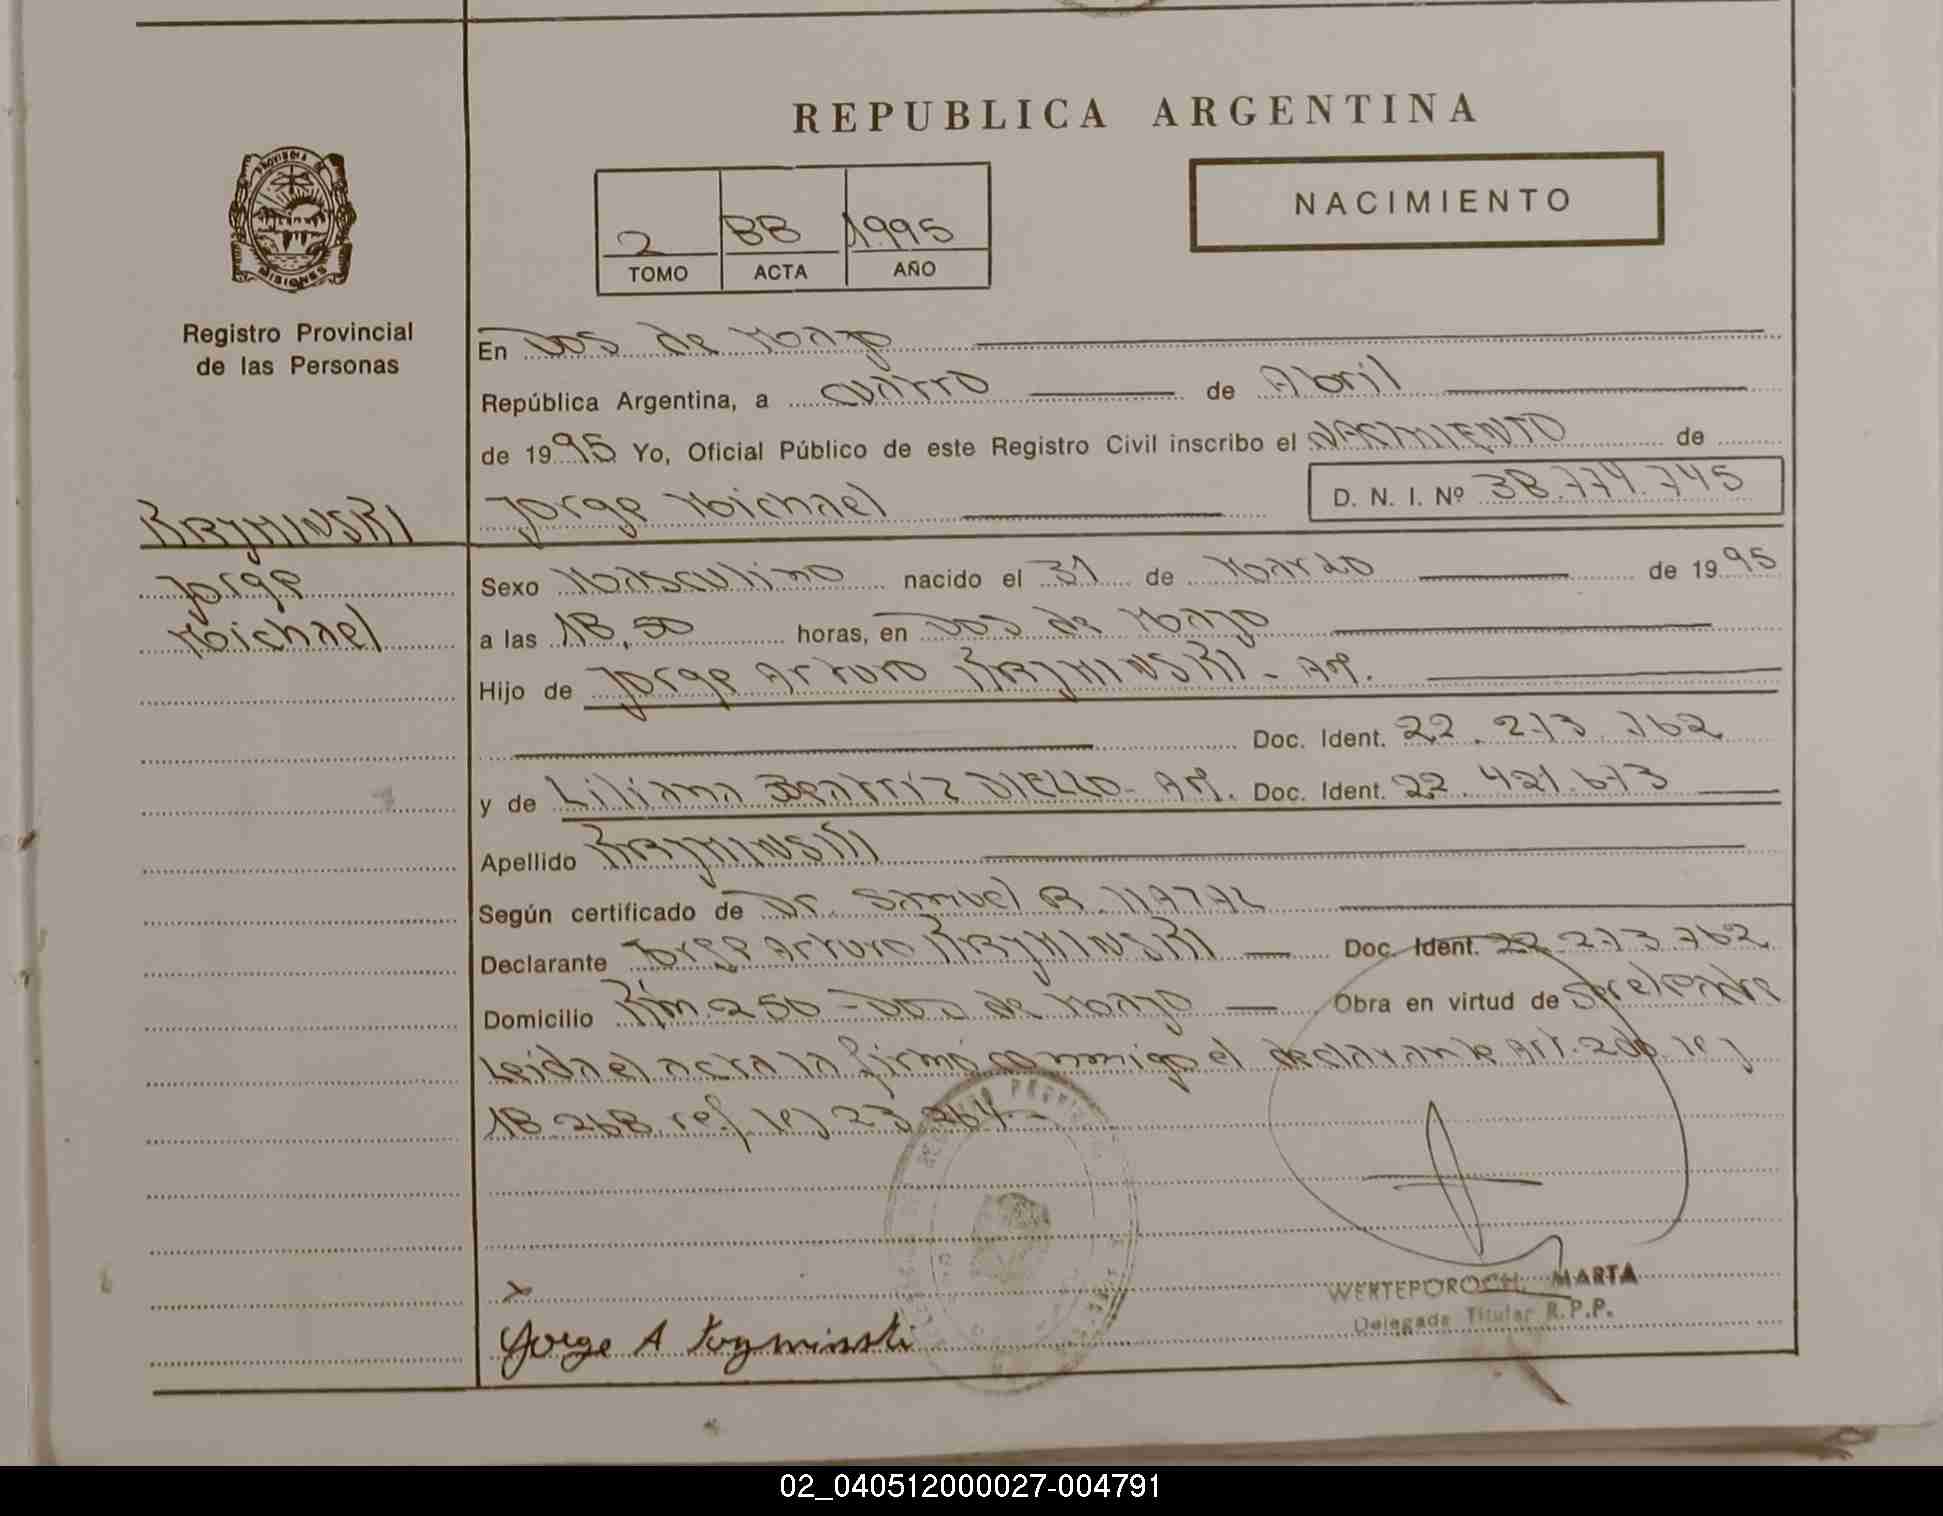 REPUBLICA ARGENTINA
NACIMIENTO
2 88 1995
TOMO ACTA AÑO
PROVINCIA DE
MISIONES
Registro Provincial
de las Personas
En Dos de Mayo
República Argentina, a cuatro de Abril
de 1995 Yo, Oficial Público de este Registro Civil inscribo el NACIMIENTO de
Jorge Michael D. N. I. Nº 38.774.745
KRYMINSKI
Jorge
Michael
Sexo Masculino nacido el 31 de Marzo de 1995
a las 18,50 horas, en Dos de Mayo
Hijo de Jorge Arturo KRYMINSKI - Ar.
Doc. Ident. 22.273.762
y de Liliana Beatriz DIELLO - Ar. Doc. Ident. 22.421.673
Apellido KRYMINSKI
Según certificado de Dr. Samuel R.
Declarante Jorge Arturo KRYMINSKI Doc. Ident. 22.273.762
Domicilio Km. 250 - Dos de Mayo Obra en virtud de
Leida el acta la firmó conmigo el declarante Art. 2do ley
18.268 ref. ley 23.264 -
x
Jorge A Kryminski
WERTEPOROCH, MARTA
Delegada Titular R.P.P.
02_040512000027-004791